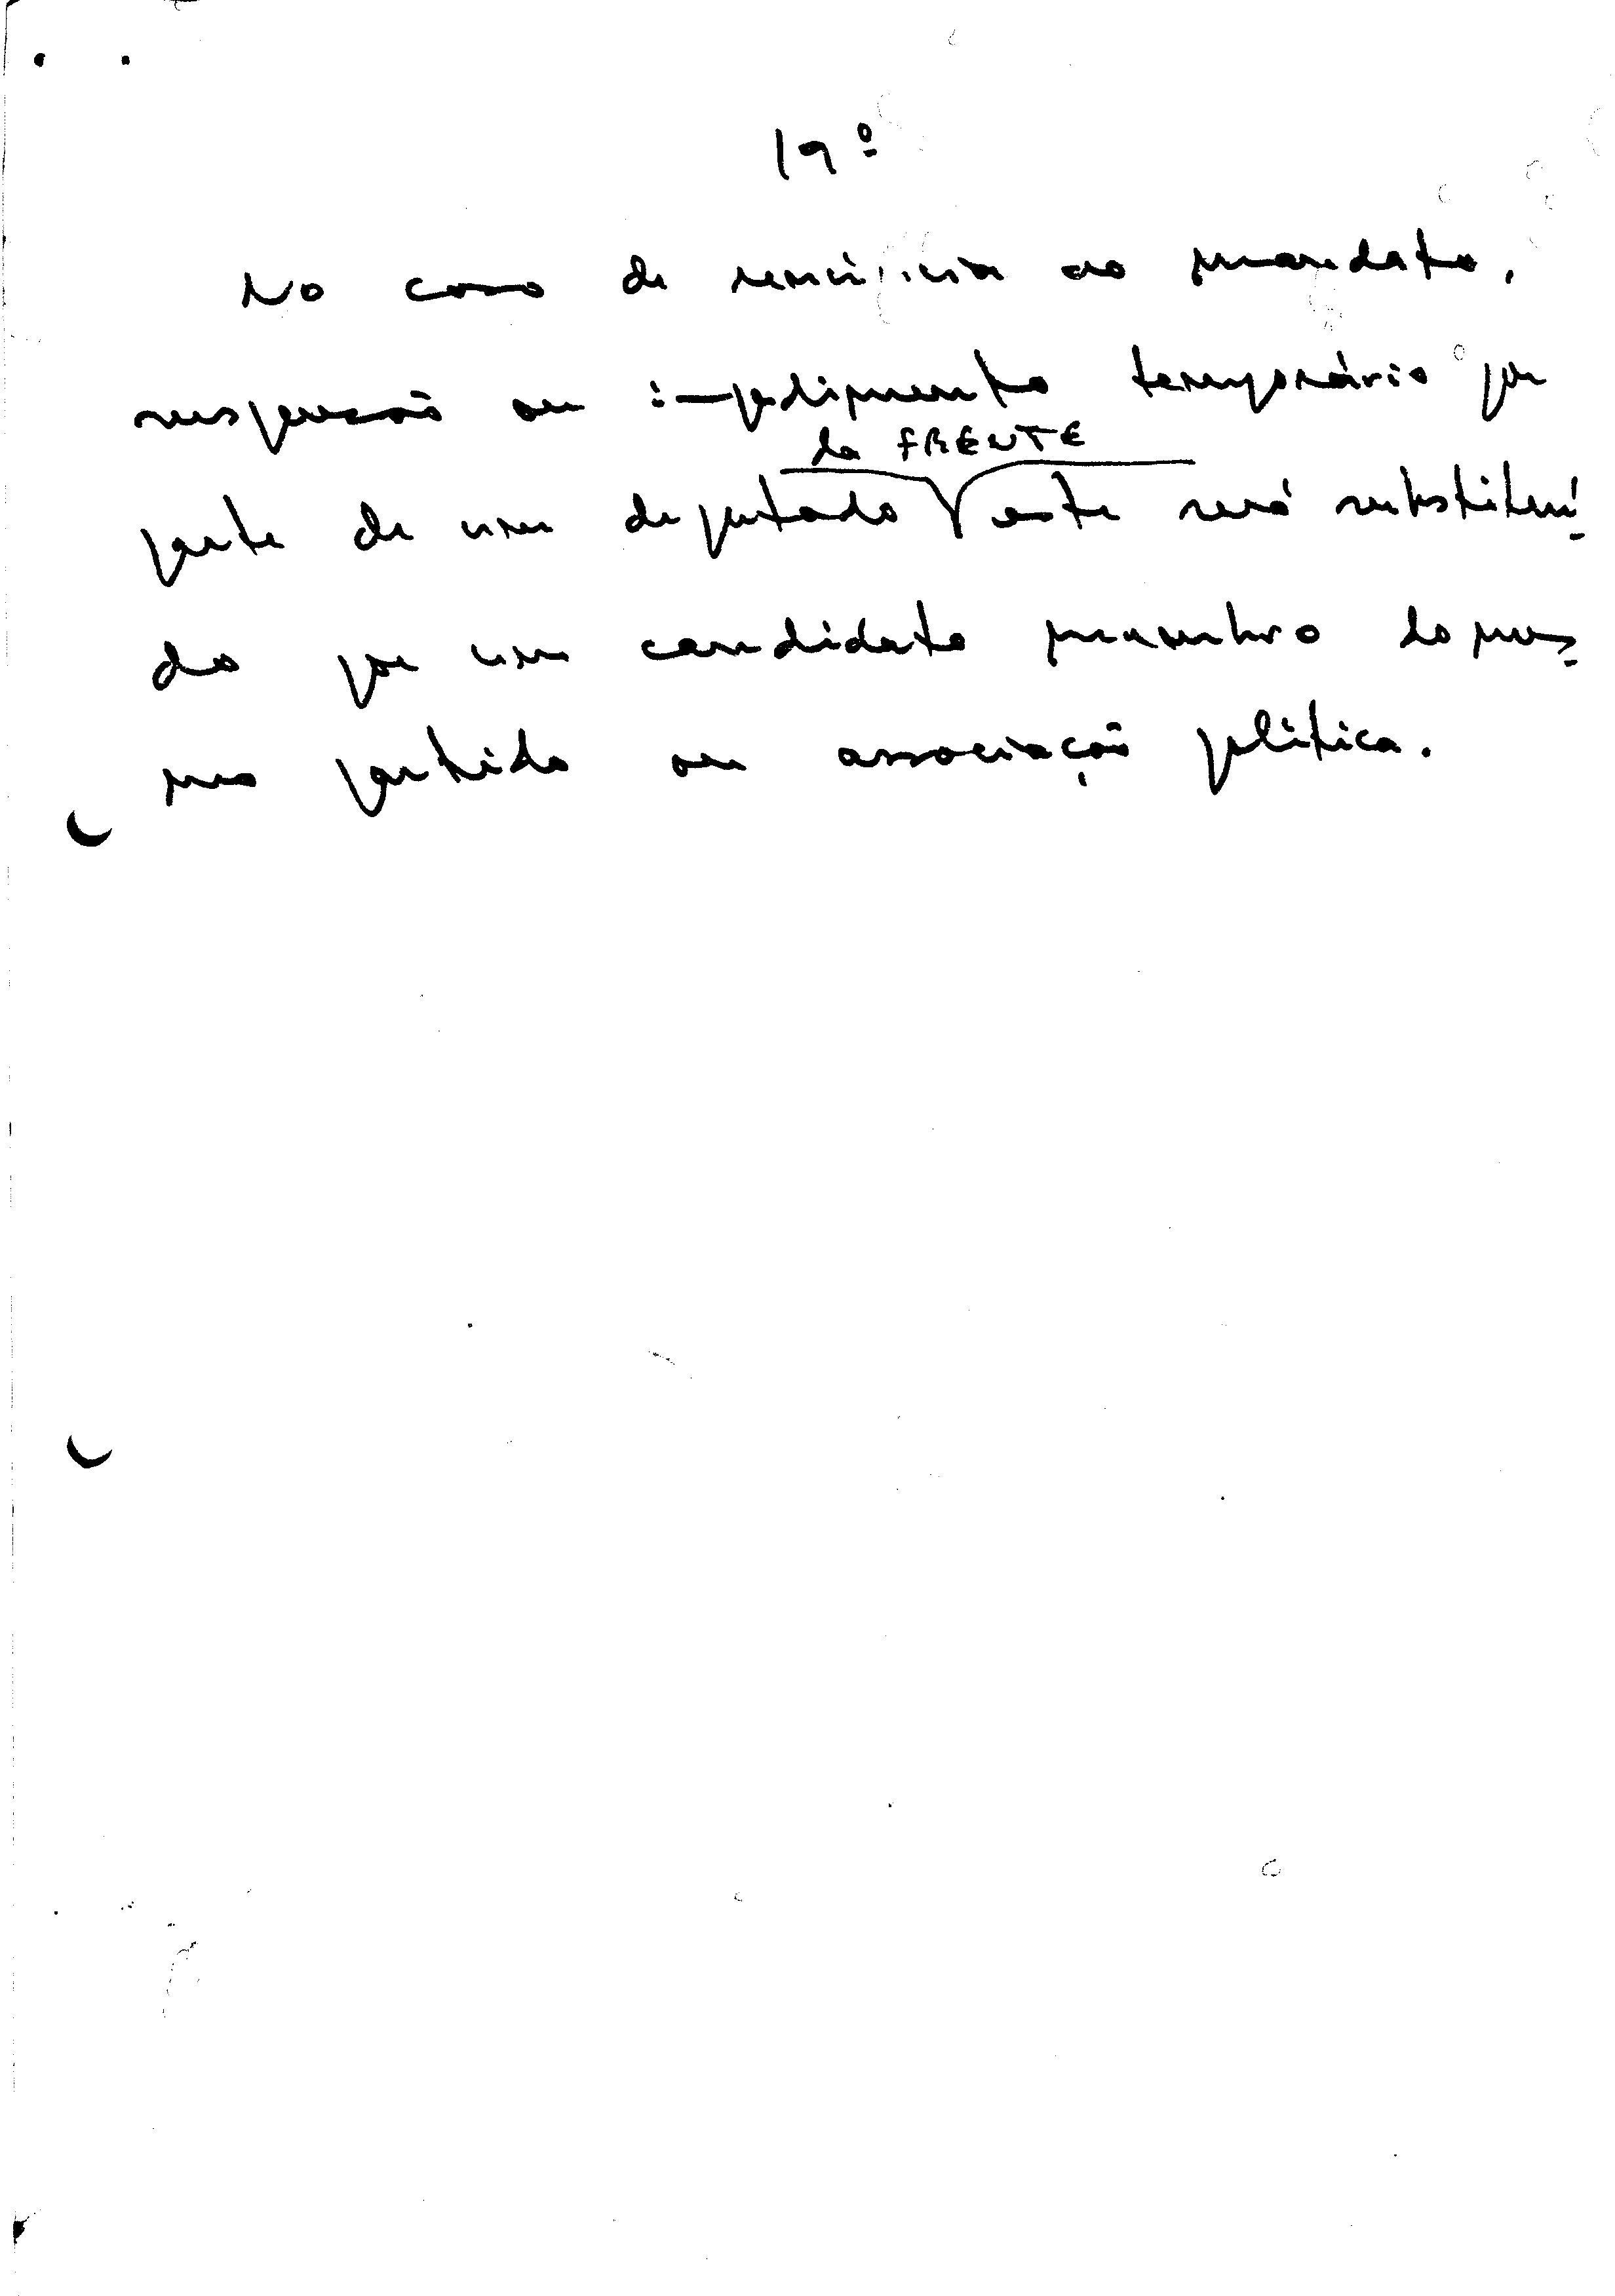 19º
No caso de renúncia ao mandato,
suspensão ou impedimento temporário por
da FRENTE
parte de um deputado este será substituí-
do por um candidato membro do mes-
mo partido ou associação política.